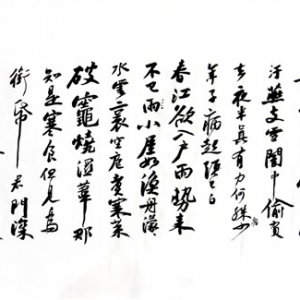 汙燕支雪闇中偷負
去夜半真有力何殊少
年子病起頭已白
春江欲入戶雨勢來
不已雨小屋如漁舟濛〻
水雲裏空庖煮寒菜
破竈燒濕葦那
知是寒食但見烏
銜帋君門深